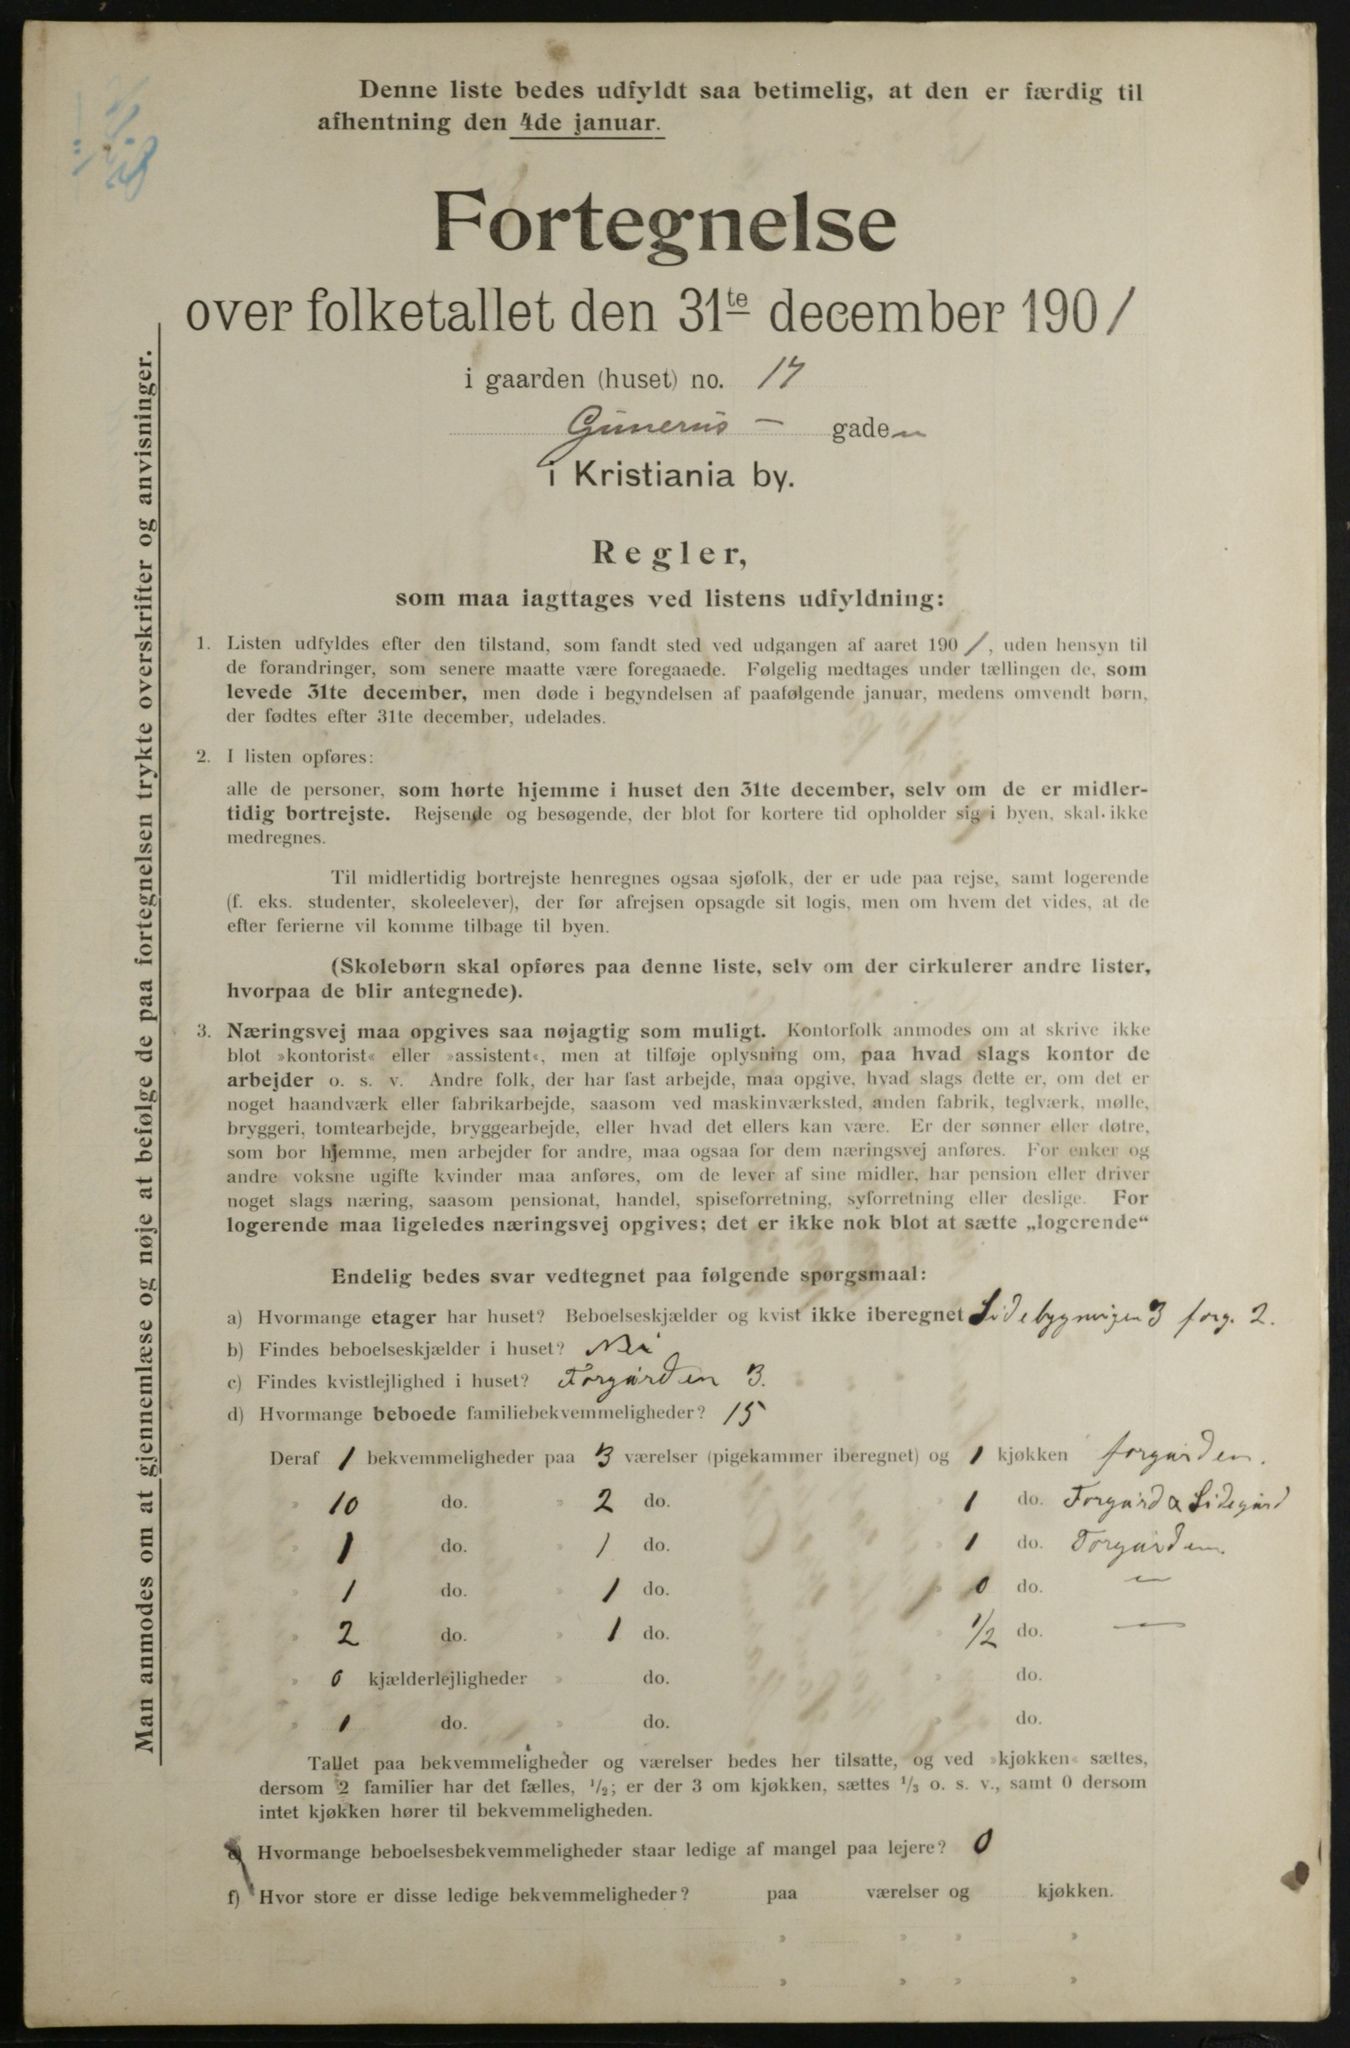 Denne liste bedes udfyldt saa betimelig, at den er færdig til
afhentning den 4de januar.
Fortegnelse
over folketallet den 31te december 1901
i gaarden (huset) no. 17
Gunerus - gaden
i Kristiania by.
Regler,
som maa iagttages ved listens udfyldning:
1. Listen udfyldes efter den tilstand, som fandt sted ved udgangen af aaret 1901, uden hensyn til
de forandringer, som senere maatte være foregaaede. Følgelig medtages under tællingen de, som
levede 31te december, men døde i begyndelsen af paafølgende januar, medens omvendt børn,
der fødtes efter 31te december, udelades.
2. I listen opføres:
alle de personer, som hørte hjemme i huset den 31te december, selv om de er midler-
tidig bortrejste. Rejsende og besøgende, der blot for kortere tid opholder sig i byen, skal ikke
medregnes.
Til midlertidig bortrejste henregnes ogsaa sjøfolk, der er ude paa rejse, samt logerende
(f. eks. studenter, skoleelever), der før afrejsen opsagde sit logis, men om hvem det vides, at de
efter ferierne vil komme tilbage til byen.
(Skolebørn skal opføres paa denne liste, selv om der cirkulerer andre lister,
hvorpaa de blir antegnede).
3. Næringsvej maa opgives saa nøjagtig som muligt. Kontorfolk anmodes om at skrive ikke
blot »kontorist« eller »assistent«, men at tilføje oplysning om, paa hvad slags kontor de
arbejder o. s. v. Andre folk, der har fast arbejde, maa opgive, hvad slags dette er, om det er
noget haandværk eller fabrikarbejde, saasom ved maskinværksted, anden fabrik, teglværk, mølle,
bryggeri, tomtearbejde, bryggearbejde, eller hvad det ellers kan være. Er der sønner eller døtre,
som bor hjemme, men arbejder for andre, maa ogsaa for dem næringsvej anføres. For enker og
andre voksne ugifte kvinder maa anføres, om de lever af sine midler, har pension eller driver
noget slags næring, saasom pensionat, handel, spiseforretning, syforretning eller deslige. For
logerende maa ligeledes næringsvej opgives; det er ikke nok blot at sætte „logerende“
Endelig bedes svar vedtegnet paa følgende spørgsmaal:
a) Hvormange etager har huset? Beboelseskjælder og kvist ikke iberegnet Sidebygnigen 3 forg. 2.
b) Findes beboelseskjælder i huset? Nei
c) Findes kvistlejlighed i huset? Forgården 3.
d) Hvormange beboede familiebekvemmeligheder? 15
Deraf 1 bekvemmeligheder paa 3 værelser (pigekammer iberegnet) og 1 kjøkken forgården.
» 10 do. » 2 do. » 1 do. Forgård & Sidegård
» 1 do. » 1 do. » 1 do. Forgården.
» 1 do. » 1 do. » 0 do. —
» 2 do. » 1 do. » 1/2 do. —
» 0 kjælderlejligheder » do. » do.
» 1 do. » do. » do.
Tallet paa bekvemmeligheder og værelser bedes her tilsatte, og ved »kjøkken« sættes,
dersom 2 familier har det fælles, 1/2; er der 3 om kjøkken, sættes 1/3 o. s. v., samt 0 dersom
intet kjøkken hører til bekvemmeligheden.
e) Hvormange beboelsesbekvemmeligheder staar ledige af mangel paa lejere? 0
f) Hvor store er disse ledige bekvemmeligheder? paa værelser og kjøkken.
» » » »
» » » »
Man anmodes om at gjennemlæse og nøje at befølge de paa fortegnelsen trykte overskrifter og anvisninger.